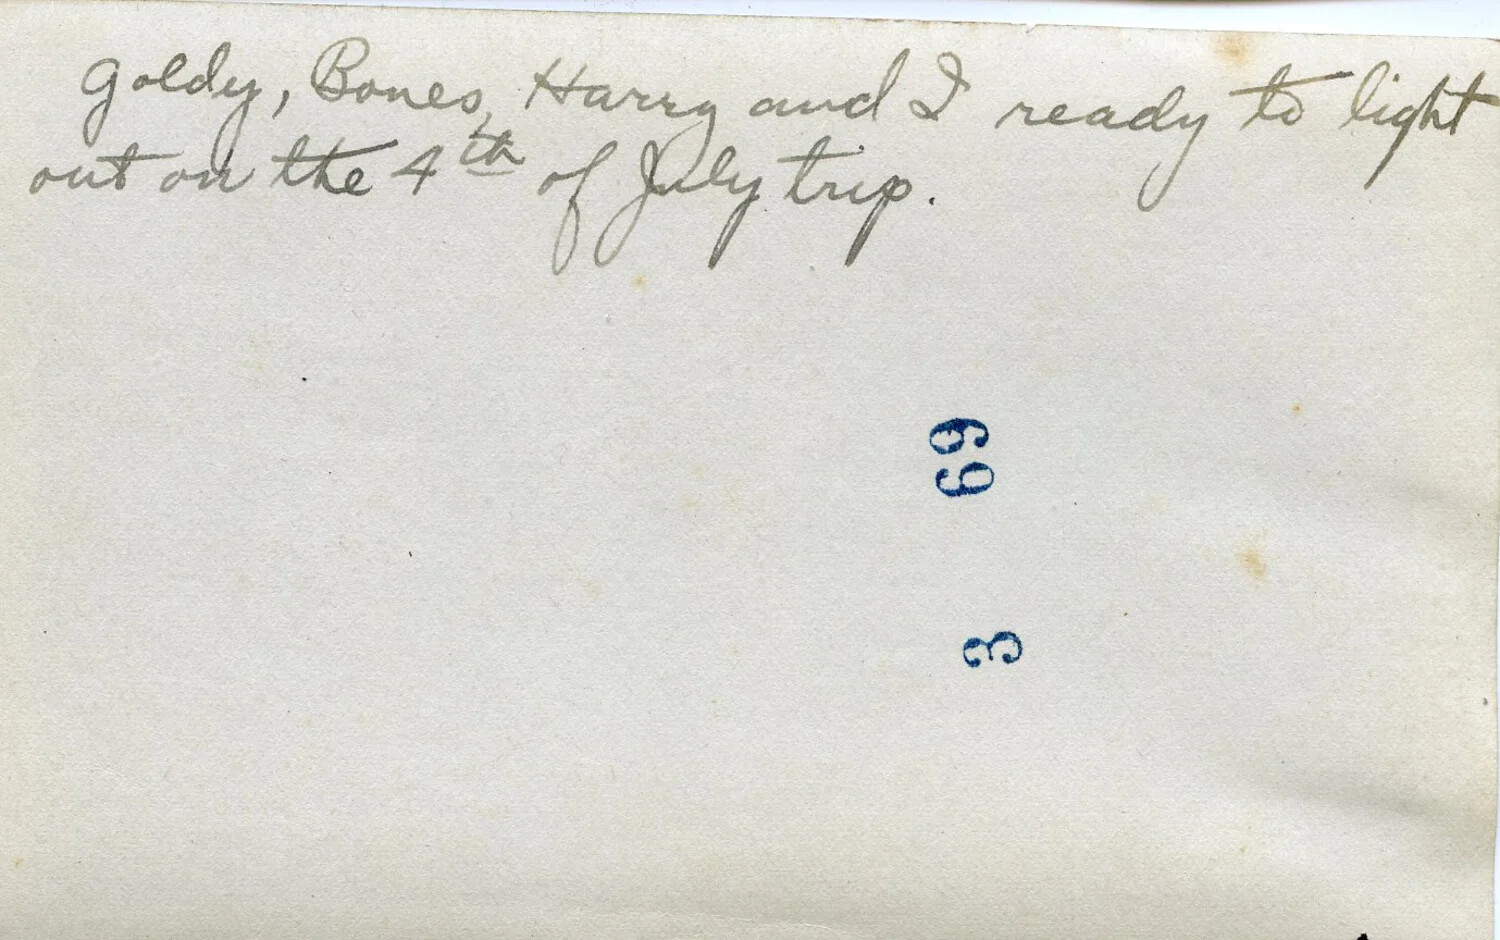 Goldy, Bones, Harry and I ready to light
out on the 4th of July trip.
69
3